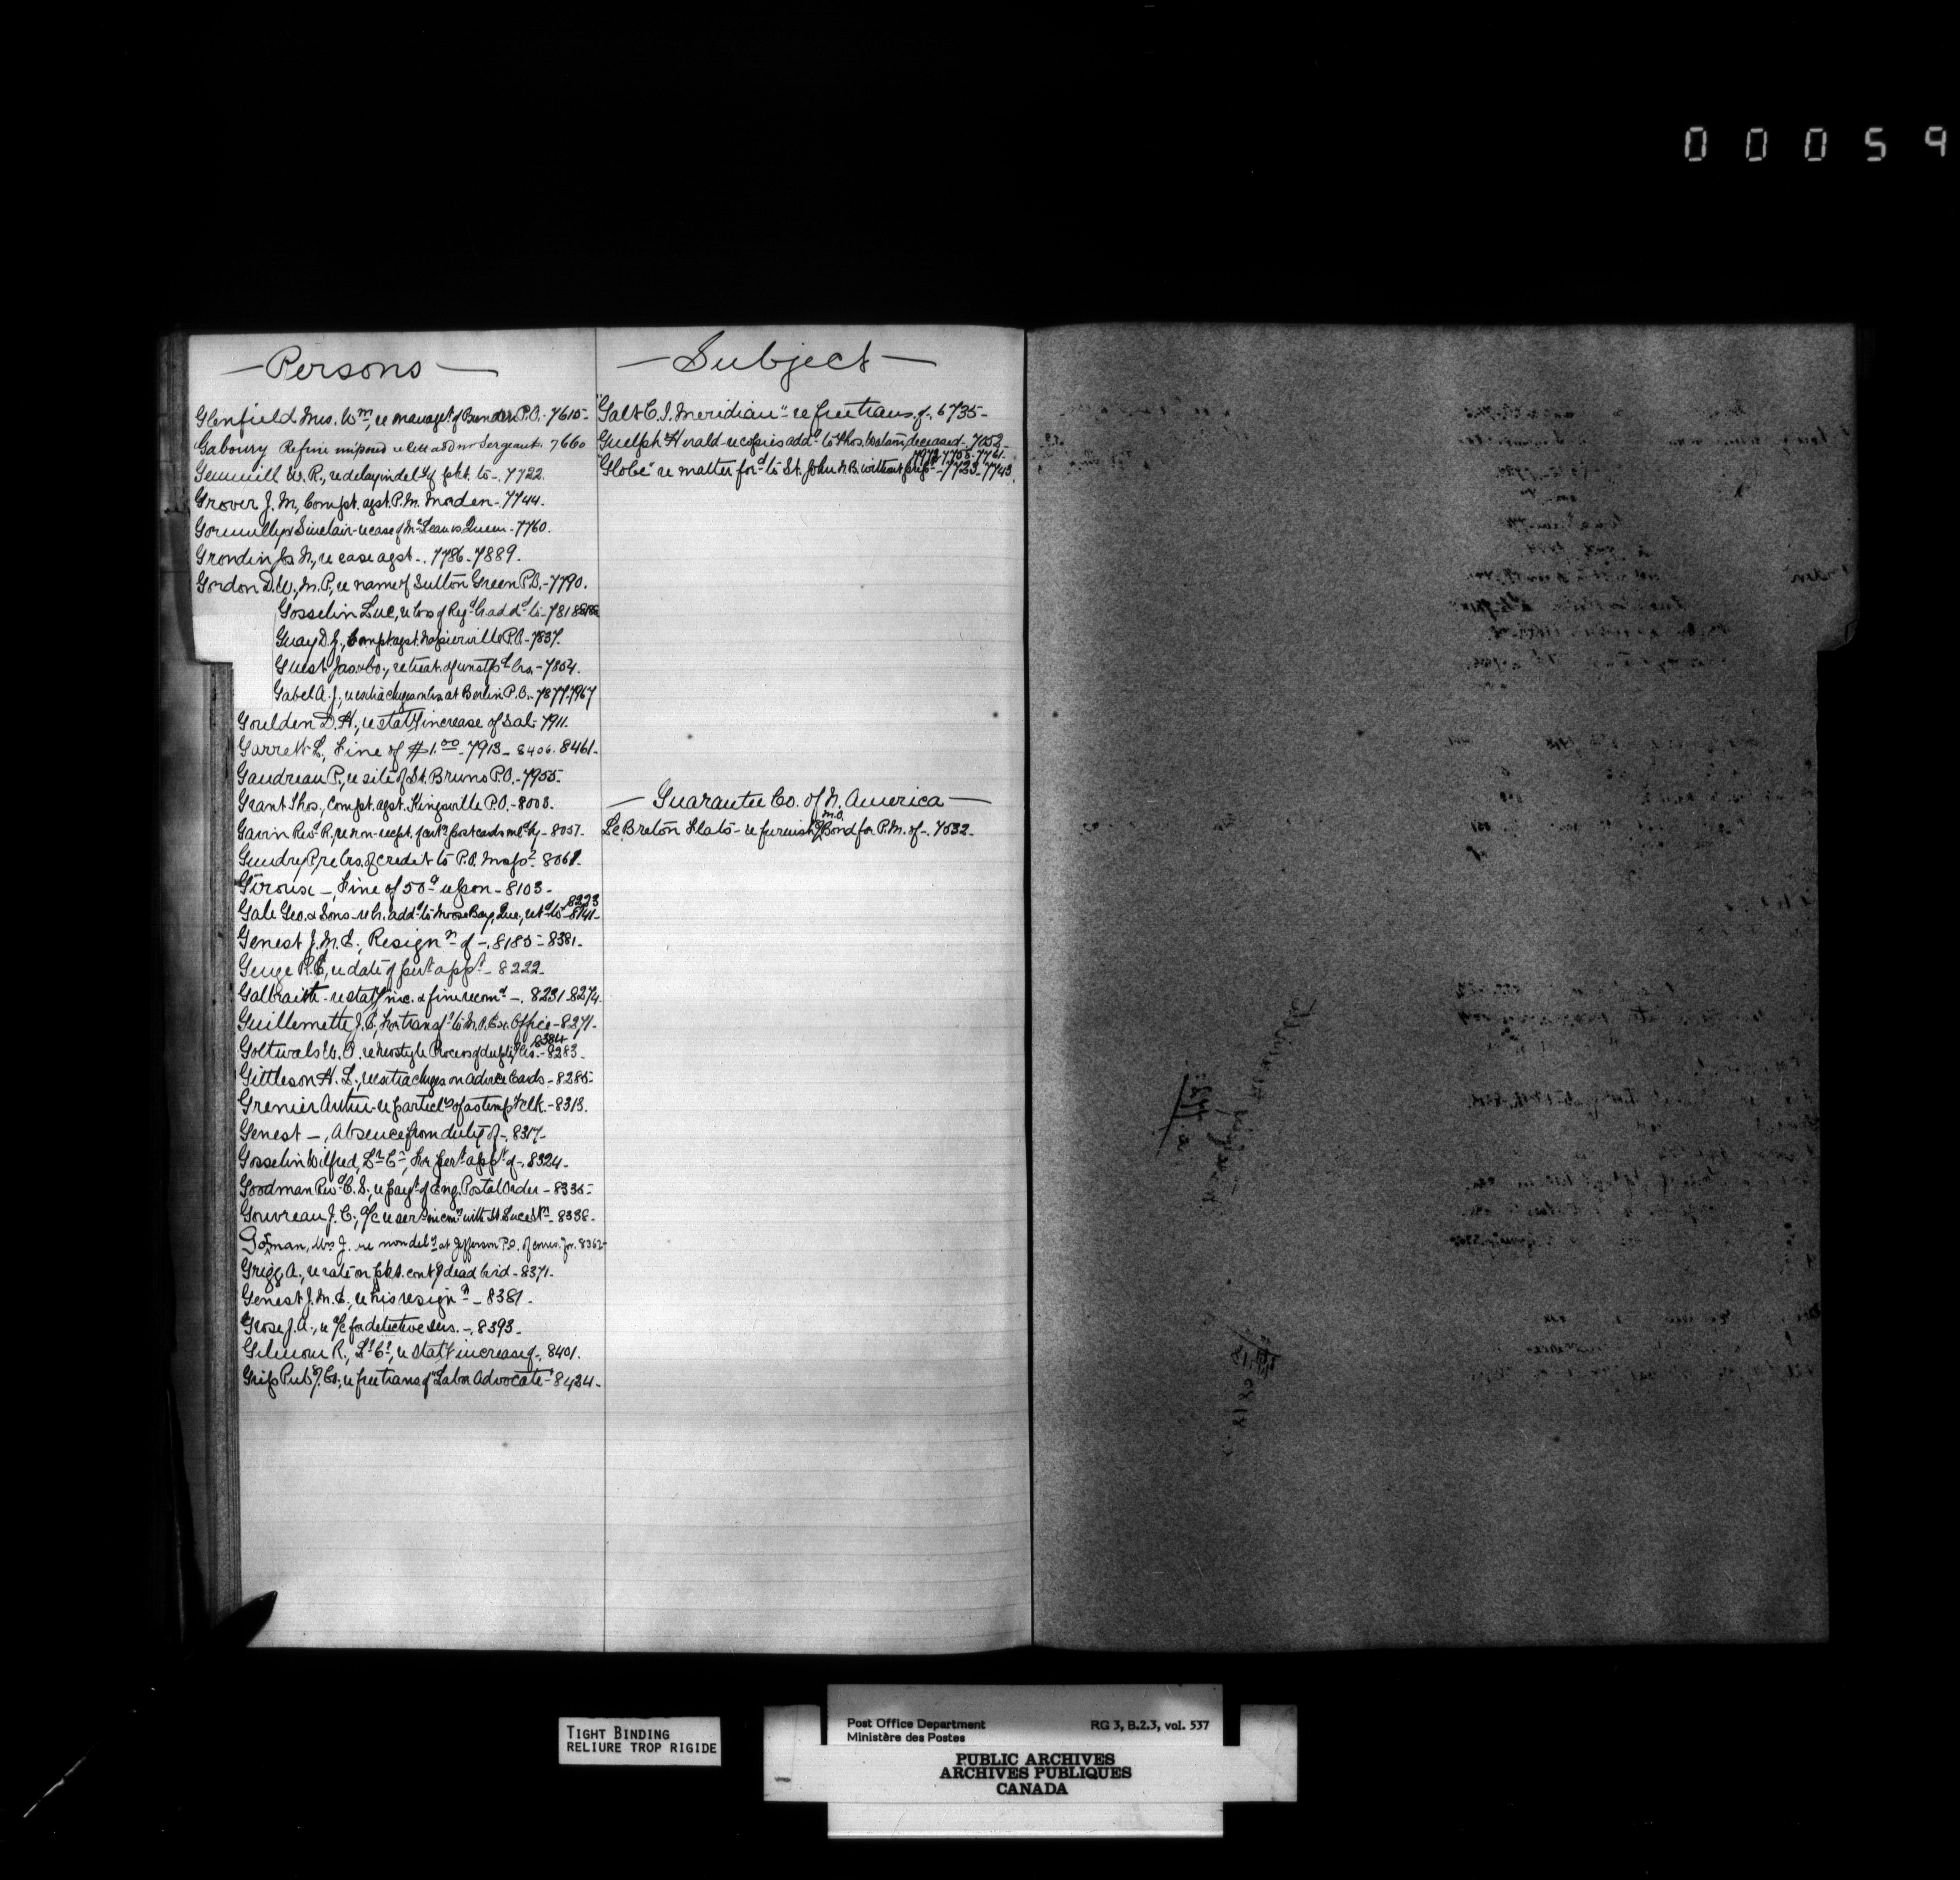 00059
— Persons —
Glenfield Mrs. Wm, re managet of Bunder P.O. - 7615 -
Gaboury Re fine imposed re lett add Mr Sergeant. 7660
Gemmill W. R., re delay in dely of pkt. to -. 7722.
Grover J. M, Compt. agst. P.M. Morden - 7744.
Gormully & Sinclair - re case of McLean vs Queen - 7760.
Grondin Jos N., re case agst -. 7786 - 7889.
Gordon D.W., M.P., re name of Sutton Green P.O. - 7790.
Gosselin Luc, re loss of Regd lr. addd to - 7818
Guay D. J., Compt agst. Napierville P.O. - 7837.
Guest Jas. & Co., re treat. of unstpd lrs. - 7854.
Gabel A. J., re extra chges on lrs at Berlin P.O. - 7877. 7967
Goulden D. H., re staty increase of Sal - 7911.
Garrett L, Fine of $1.00 - 7913 - 8406. 8461 -
Gaudreau P., re site of St. Bruno P.O. - 7955 -
Grant Thos., Compt. agst. Kingsville P.O. - 8003.
Gavin Revd R., re non-recpt. of post cards mld by - 8057 -
Gendry P, re lrs. of credit to P.O. 8068.
Giroux —, Fine of 50c upon - 8103 -
8223
Gale Geo. & Sons - re lr. addd to Moose Bay, Que, retd to - 8141 -
Genest J. M. E., Resignn of -. 8185 - 8381 -
Guige R. E, re date of pert appt - 8222 -
Galbraith - re staty inc. & fine recomd -. 8231 - 8274.
Guillemette J. E, for transf. to M.O. Ex. Office - 8271 -
8384
Gottwals W. P. re Neostyle Process of duply lrs. - 8283 -
Gittleson H. L., re extra chges on advice Cards - 8285 -
Grenier Arthur - re particls of as tempy clk. - 8313.
Genest —, Absence from duty of -. 8317 -
Gosselin Wilfred, Lr Cr, for pert appt of -. 8324 -
Goodman Revd C. S., re payt of Eng. Postal Order - 8335 -
Gouvreau J. C., a/c re serv in conn with St. Luce Stn - 8338 -
Gorman, Mrs J. re non dely at Jefferson P.O. of corres. for. 8362 -
Grigg A., re rate on pkt. contg dead bird - 8371 -
Genest J. M. E., re his resignn - 8381 -
Grose J. A., re a/c for detective sers. -. 8393 -
Gilmour R., Lr Cr, re staty increase of -. 8401.
Grip Pubg Co., re free trans of "Labor Advocate" - 8434 -
— Subject —
"Galt C. I. Meridian" - re free trans. of. 6735 -
Guelph Herald - re copies addd to Thos. deceased - 7052 -
7755 - 7761 -
"Globe" re matter ford to St. John N.B. without - 7723 - 7743.
— Guarantee Co. of N. America —
M.O.
Le Breton Flats - re furnishg of Bond for P.M. of -. 7532 -
TIGHT BINDING
RELIURE TROP RIGIDE
Post Office Department RG 3, B.2.3, vol. 537
Ministère des Postes
PUBLIC ARCHIVES
ARCHIVES PUBLIQUES
CANADA